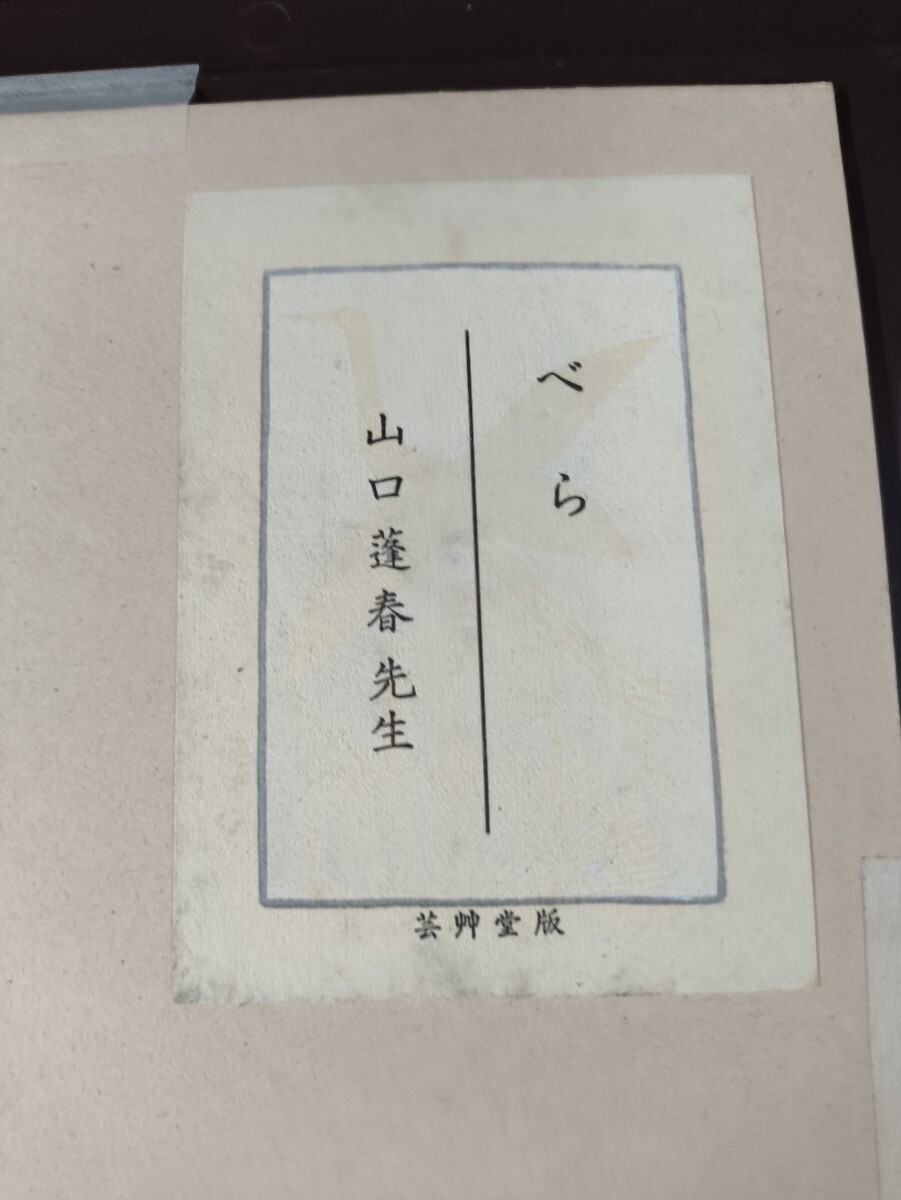 べら
山口蓬春先生
芸艸堂版